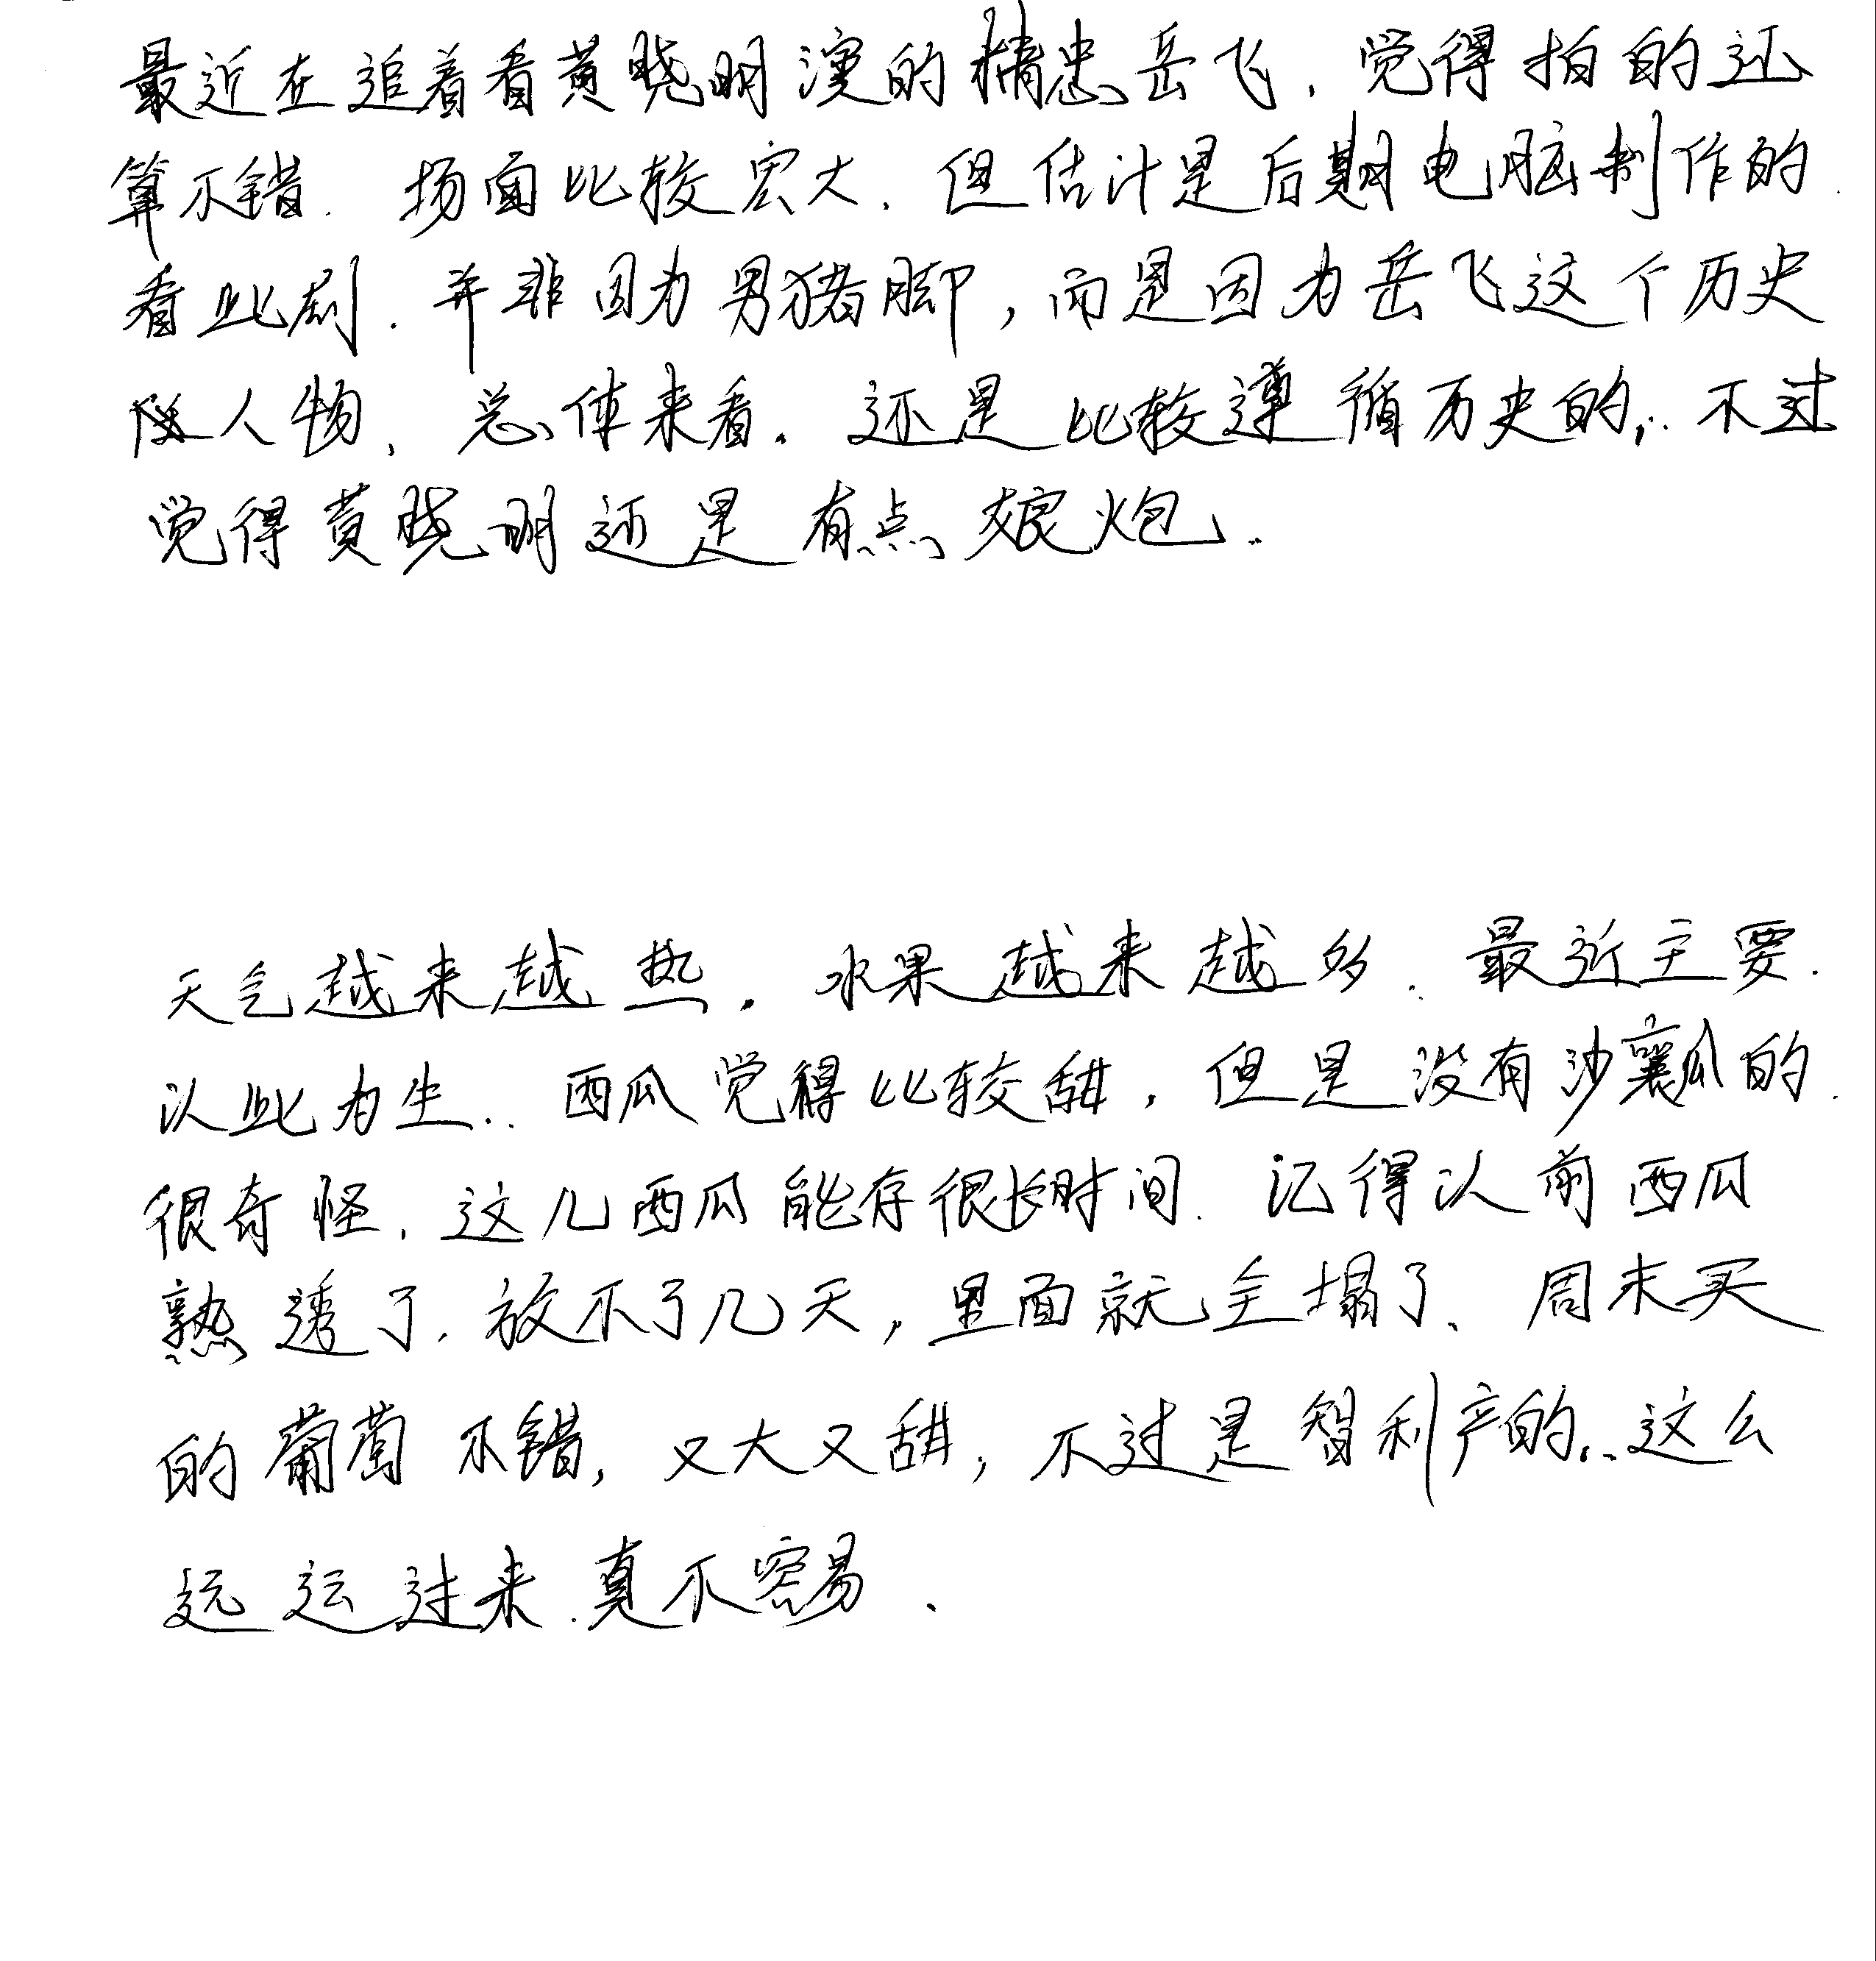 最近在追着看黄晓明演的精忠岳飞，觉得拍的还
算不错．场面比较宏大，但估计是后期电脑制作的．
看此剧．并非因为男猪脚，而是因为岳飞这个历史
人物，总体来看，还是比较遵循历史的，不过
觉得黄晓明还是有点娘炮．
天气越来越热，水果越来越多．最近主要
以此为生．西瓜觉得比较甜，但是没有沙瓤的．
很奇怪，这儿西瓜能存很长时间．记得以前西瓜
熟透了，放不了几天，里面就全塌了、周末买
的葡萄不错，又大又甜，不过是智利产的．这么
远运过来．真不容易．